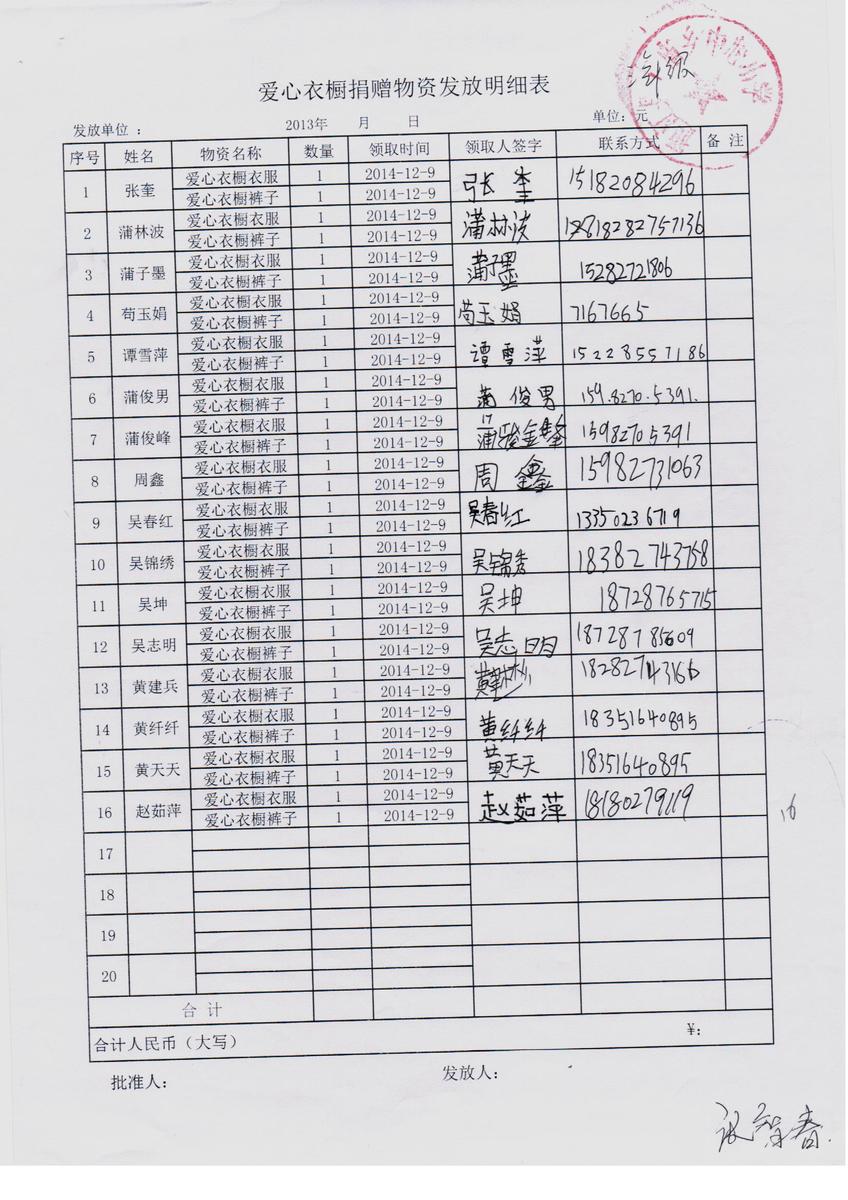 爱心衣橱捐赠物资发放明细表
年级
中心小学
发放单位：　2013年　月　日　单位：元
序号 姓名 物资名称 数量 领取时间 领取人签字 联系方式 备注
1 张奎 爱心衣橱衣服 1 2014-12-9 张奎 15182084296
爱心衣橱裤子 1 2014-12-9
2 蒲林波 爱心衣橱衣服 1 2014-12-9 蒲林波 18282757136
爱心衣橱裤子 1 2014-12-9
3 蒲子墨 爱心衣橱衣服 1 2014-12-9 蒲子墨 15282721806
爱心衣橱裤子 1 2014-12-9
4 苟玉娟 爱心衣橱衣服 1 2014-12-9 苟玉娟 7167665
爱心衣橱裤子 1 2014-12-9
5 谭雪萍 爱心衣橱衣服 1 2014-12-9 谭雪萍 15228557186
爱心衣橱裤子 1 2014-12-9
6 蒲俊男 爱心衣橱衣服 1 2014-12-9 蒲俊男 159.8270.5391.
爱心衣橱裤子 1 2014-12-9
7 蒲俊峰 爱心衣橱衣服 1 2014-12-9 15982705391
爱心衣橱裤子 1 2014-12-9
8 周鑫 爱心衣橱衣服 1 2014-12-9 周鑫 15982731063
爱心衣橱裤子 1 2014-12-9
9 吴春红 爱心衣橱衣服 1 2014-12-9 吴春红 13350236719
爱心衣橱裤子 1 2014-12-9
10 吴锦绣 爱心衣橱衣服 1 2014-12-9 吴锦秀 18382743758
爱心衣橱裤子 1 2014-12-9
11 吴坤 爱心衣橱衣服 1 2014-12-9 吴坤 18728765715
爱心衣橱裤子 1 2014-12-9
12 吴志明 爱心衣橱衣服 1 2014-12-9 吴志明 18728785609
爱心衣橱裤子 1 2014-12-9
13 黄建兵 爱心衣橱衣服 1 2014-12-9 18282743166
爱心衣橱裤子 1 2014-12-9
14 黄纤纤 爱心衣橱衣服 1 2014-12-9 黄纤纤 18351640895
爱心衣橱裤子 1 2014-12-9
15 黄天天 爱心衣橱衣服 1 2014-12-9 黄天天 18351640895
爱心衣橱裤子 1 2014-12-9
16 赵茹萍 爱心衣橱衣服 1 2014-12-9 赵茹萍 18180279119
爱心衣橱裤子 1 2014-12-9
16
17
18
19
20
合计
合计人民币（大写）　¥：
批准人：　发放人：